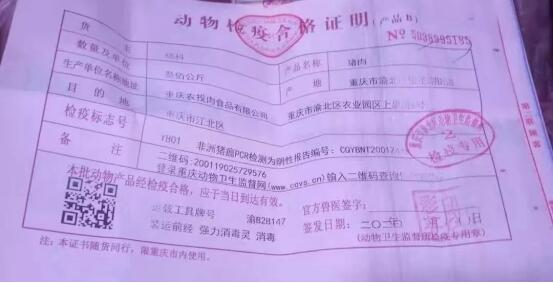 动物检疫合格证明（产品B）
No 5038995185
货主
产品名称 猪肉
数量及单位 叁佰公斤
产地 重庆市渝北
生产单位名称地址 重庆农投肉食品有限公司 重庆市渝北区农业园区上
目的地 重庆市江北区
检疫标志号 rB01
备注 非洲猪瘟PCR检测为阴性报告编号：CQYBNT20012
二维码：200119025729576
登录重庆动物卫生监督网(www.cqvs.cn)输入二维码查询
本批动物产品经检疫合格，应于当日到达有效。
运载工具牌号 渝B2B147
装运前经 强力消毒灵 消毒
官方兽医签字：
签发日期：二〇二〇年
（动物卫生监督所检疫专用章）
注：本证书随货同行，限重庆市内使用。
检疫专用